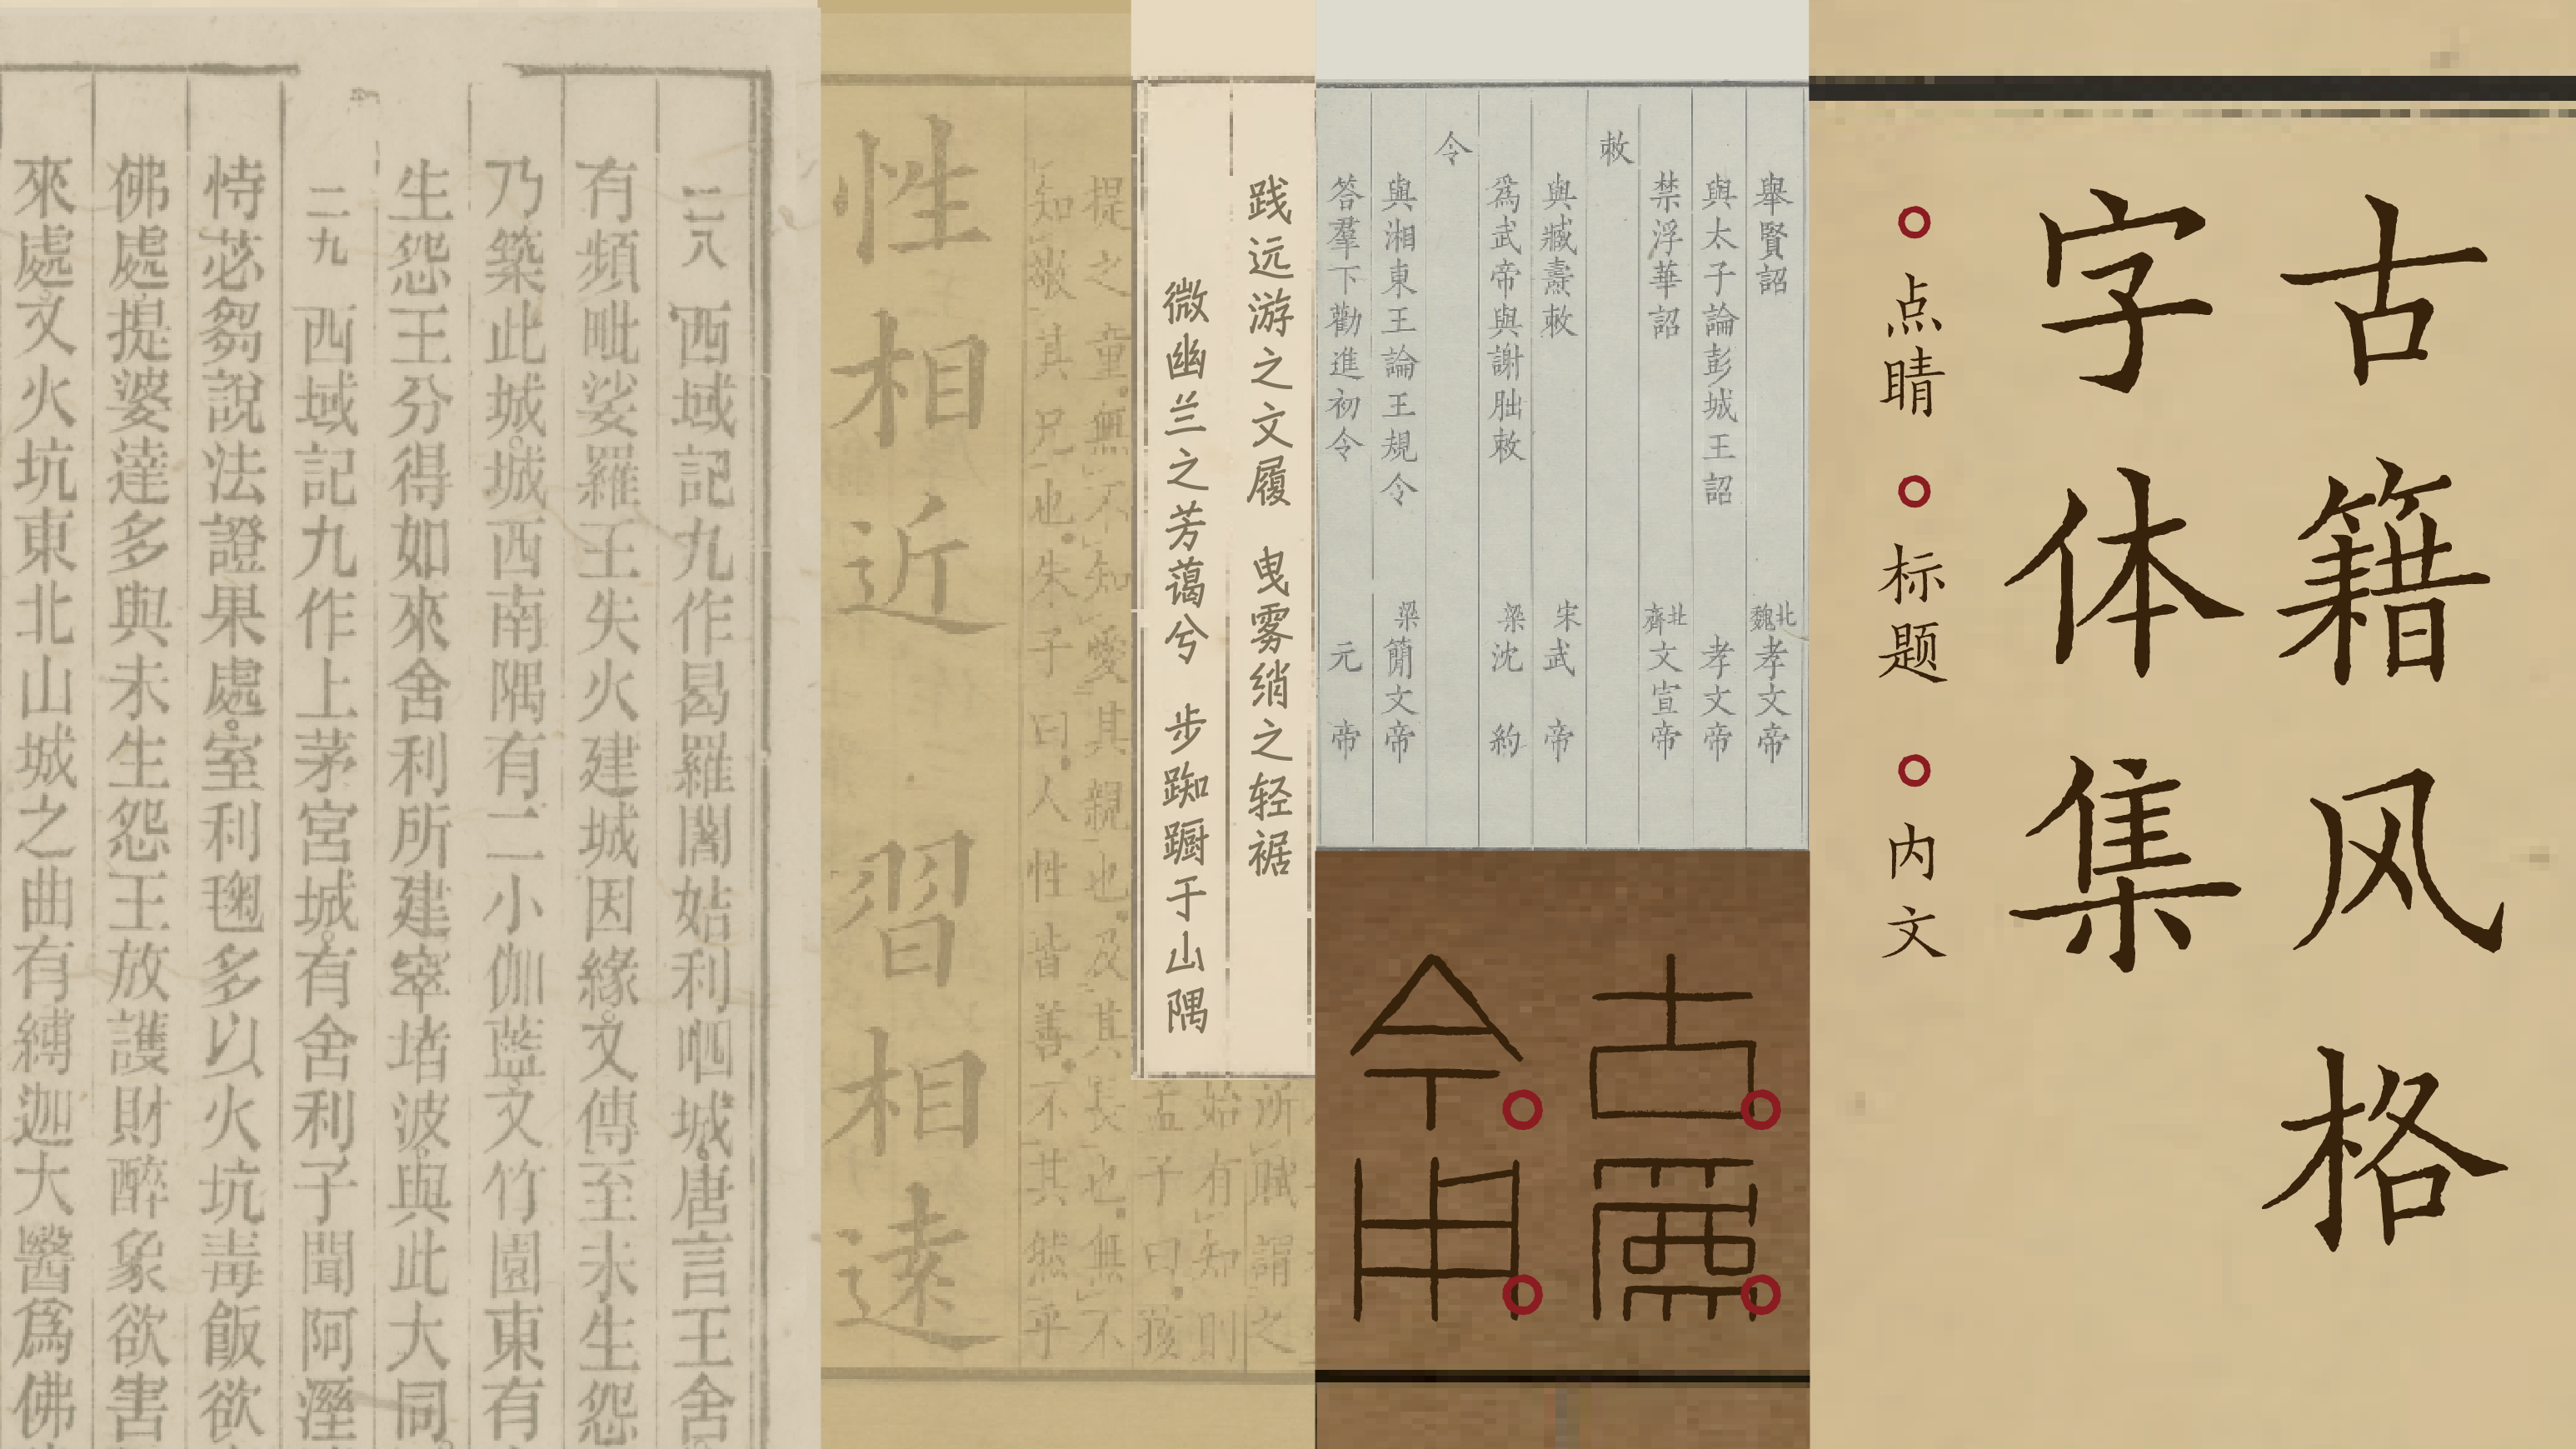 古籍风格
字体集
点睛
标题
内文
舉賢詔 北魏孝文帝
與太子論彭城王詔 孝文帝
禁浮華詔 北齊文宣帝
敕
與臧燾敕 宋武帝
爲武帝與謝朏敕 梁沈約
令
與湘東王論王規令 梁簡文帝
答羣下勸進初令 元帝
古
今
践远游之文履 曳雾绡之轻裾
微幽兰之芳蔼兮 步踟蹰于山隅
提之童無不知愛其親也及其長也無不
知敬其兄也朱子曰人性皆善不其然乎
所賦謂之
始有知則
孟子曰孩
性相近 習相遠
二八 西域記九作曷羅闍姞利呬城唐言王舍
有頻毗娑羅王失火建城因緣又傳至未生怨
乃築此城城西南隅有二小伽藍又竹園東有
生怨王分得如來舍利所建窣堵波與此大同
二九 西域記九作上茅宮城有舍利子聞阿溼
恃苾芻說法證果處室利毱多以火坑毒飯欲
佛處提婆達多與未生怨王放護財醉象欲害
來處又火坑東北山城之曲有縛迦大醫爲佛